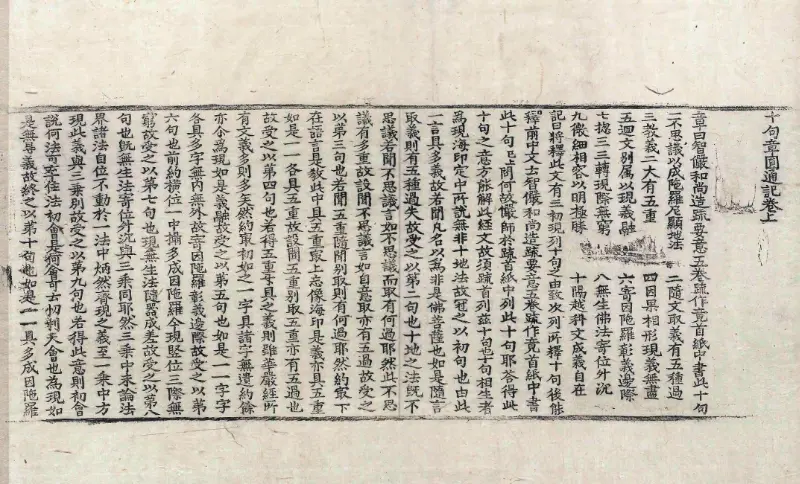 十句章圓通記卷上
章曰智儼和尚造疏要意五卷疏作竟首紙中書此十句
一不思議以成陁羅尼顯地法　二隨文取義有五種過
三教義二大有五重　四因果相形現義無盡
五迴文別屬以現義融　六寄因陁羅彰義邊際
七揔三三轉現際無窮　八無生佛法寄位升沉
九微細相容以明極勝　十隔越科文成義自在
記曰將釋此文有三初現列十句之由致次列所釋十句後能
釋章中文士智儼和尚造疏要意五卷疏作竟首紙中書
此十句　問何故儼師於疏首紙中列此十句耶答得此
十句之意方能解此經文故須疏首列茲十句也十句相生者
為現海印定中所說無非十地法故冠之以初句也由此
一言具多義故若聞凡名以為非是佛菩薩也如是隨言
取義則有五種過失故受之以第二句也十地之法既不
思議若聞不思議言如不思議而取有何過耶然此不思
議有多重故設聞不思議言如自意取亦有五過故受之
以第三句也若聞五重隨聞別取則有何過耶然約取下
在語言是教此中具五重取上志像海印是義亦具五重
如是一一各具五重故設聞五重別取五重亦有五過也
故受之以第四句也若得五重具之義則雖華嚴經所
有文義多則多矣然約取初如之一字具諸字無遺約餘
亦令為現如是義融故受之以第五句也如是一一字字
各具多字無內無外故寄因陁羅彰義邊際故受之以第
六句也前約橫位一中攝多成因陁羅今現竪位三際無
窮故受之以第七句也現無生法隨器成差故受之以第八
句也旣無生法寄位升沉與三乘同耶然三乘中來論法
界諸法自位不動於一法中炳然齊現之義至一乘中方
現此義與三乘別故受之以第九句也若得此意則初會
說何法可至住法初會具何會耶云忉利天會也為現如
是無㝵義故終之以第十句也如是一一具多成因陁羅